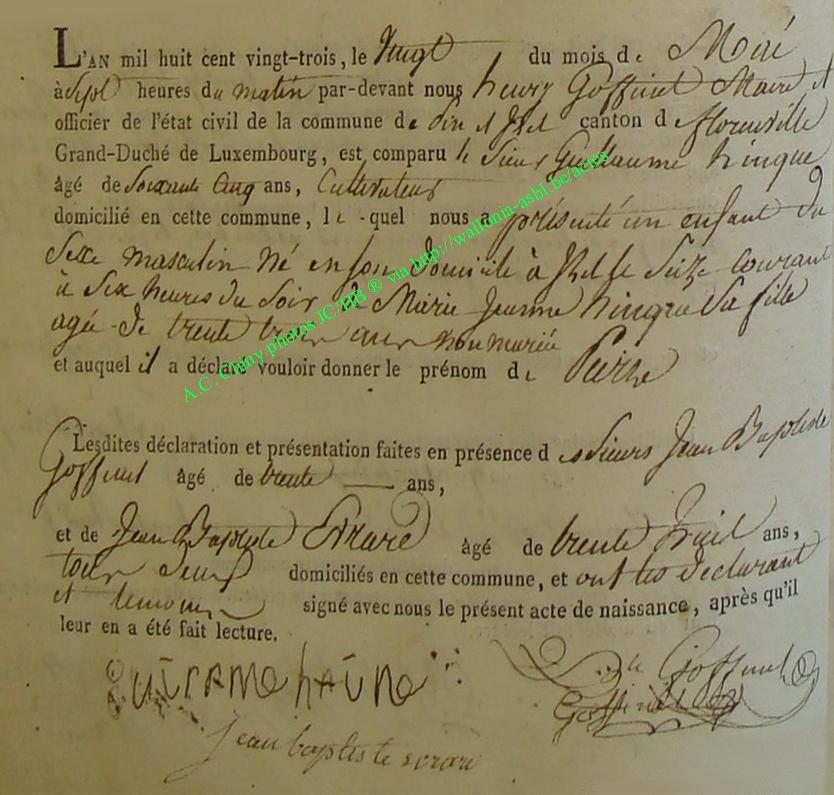 L'AN mil huit cent vingt-trois, le vingt du mois de Mai
à Sept heures du matin par-devant nous henry Goffinet Maire et
officier de l'état civil de la commune de et Izel canton de florenville
Grand-Duché de Luxembourg, est comparu le Sieur Guillaume hinque
âgé de Soixante Cinq ans, Cultivateur
domicilié en cette commune, le -quel nous a présenté un enfant du
Sexe masculin né en son domicile à Izel le Seize courant
à Six heures du Soir de Marie Jeanne hinque Sa fille
agée de trente trois ans non mariée
et auquel il a déclaré vouloir donner le prénom de Pierre
Lesdites déclaration et présentation faites en présence des Sieurs Jean Baptiste
Goffinet âgé de trente ans,
et de Jean Baptiste âgé de trente huit ans,
tous deux domiciliés en cette commune, et ont les declarant
et temoins signé avec nous le présent acte de naissance, après qu'il
leur en a été fait lecture.
Goffinet
Goffinet
jean baptiste
A.C. Chiny photos JC/HB ® via http://wallonia-asbl.be/actes